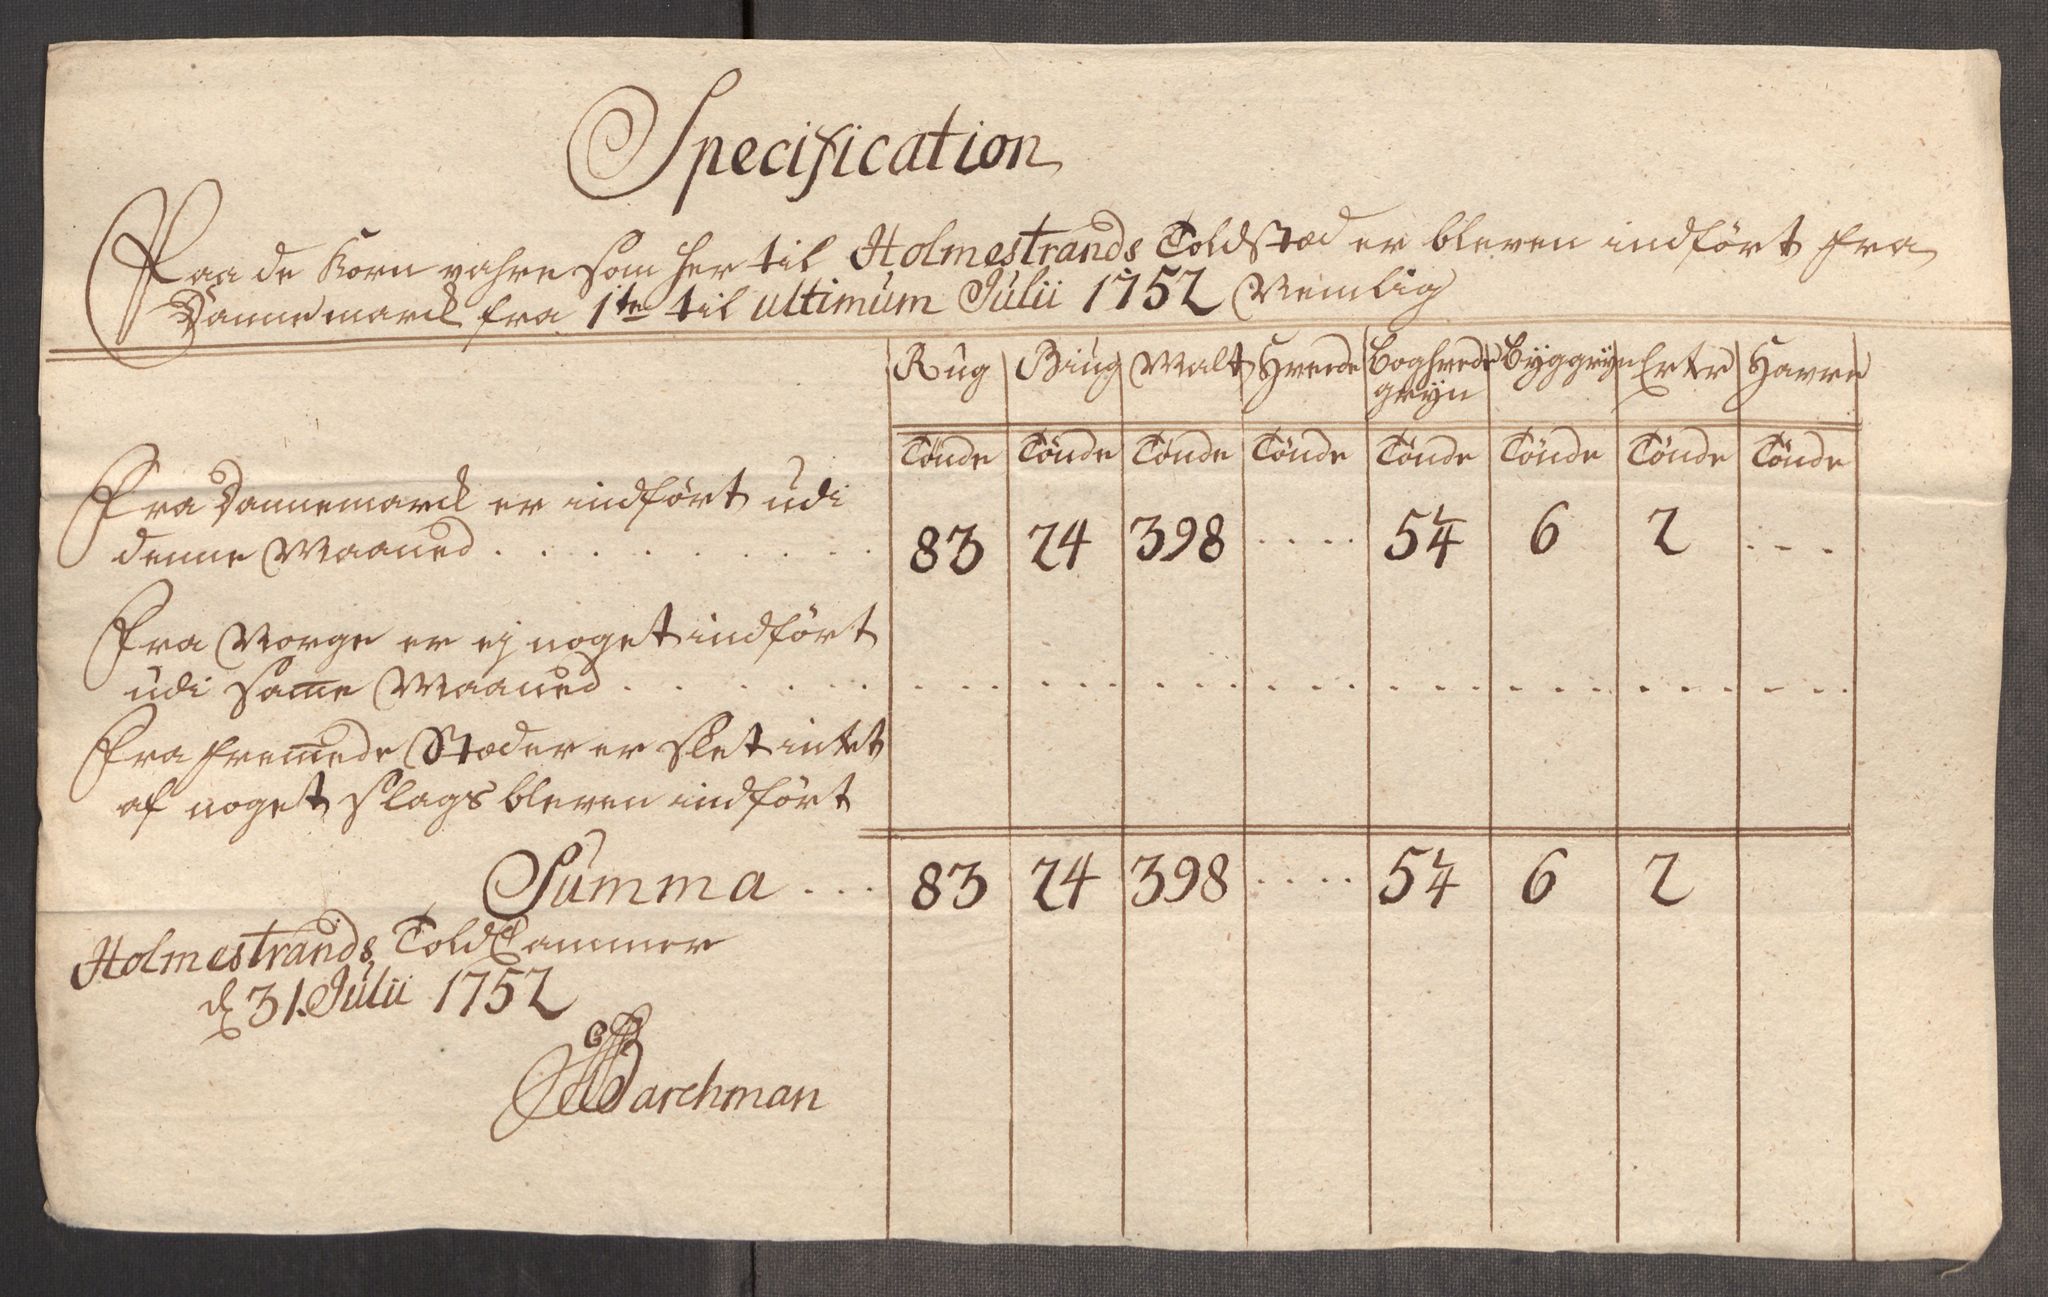 Specification
Paa de Korn vahre som her til Holmestrands Toldsted er bleven indført fra
Dannemarck fra 1te til ultimum Julii 1752 Nemlig
Rug Biug Malt Hvede Boghvede Byggryn Erter Havre
gryn
Tönde Tönde Tönde Tönde Tönde Tönde Tönde Tönde
Fra Dannemarck er indført udi
denne Maaned . . . . . . . . . 83 24 398 . . . . 54 6 2 . . . .
Fra Norge er ej noget indført
udi same Maaned . . . . . . . . . . . . . . . . . . . . . . . . . . . . .
Fra fremede Stæder er slet intet
af noget slags bleven indført
Summa . . . 83 24 398 . . . . 54 6 2
Holmestrands Told Cammer
d 31. Julii 1752
Barchman